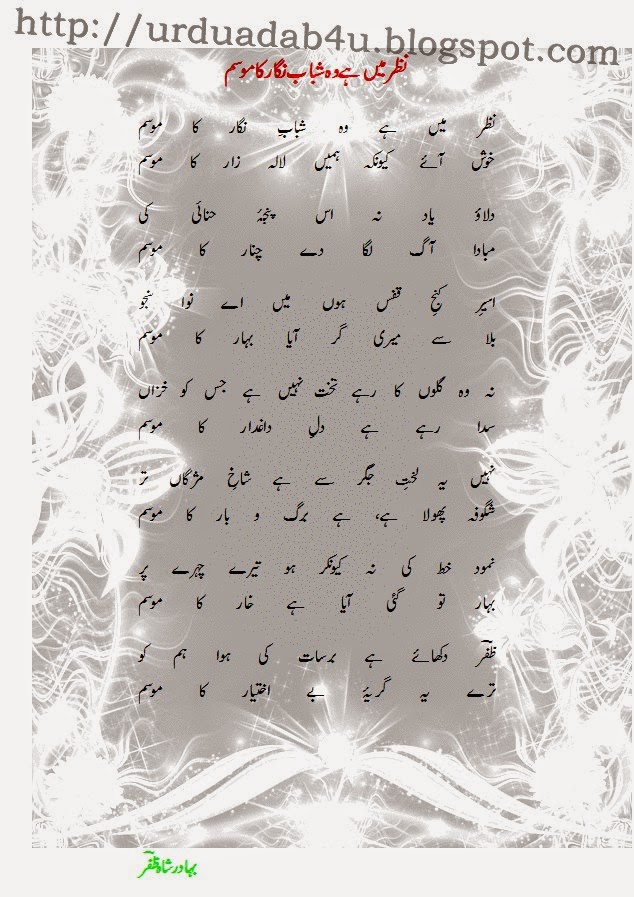 http://urduadab4u.blogspot.com
نظر میں ہے وہ شبابِ نگار کا موسم
نظر میں ہے وہ شبابِ نگار کا موسم
خوش آئے کیونکہ ہمیں لالہ زار کا موسم
دلاؤ یاد نہ اس پنجۂ حنائی کی
مبادا آگ لگا دے چنار کا موسم
اسیرِ کنجِ قفس ہوں میں اے نوا سنجو
بلا سے میری گر آیا بہار کا موسم
نہ وہ گلوں کا رہے تخت نہیں ہے جس کو خزاں
سدا رہے ہے دلِ داغدار کا موسم
نہیں یہ لختِ جگر سے ہے شاخِ مژگاں تر
شگوفہ پھولا ہے، ہے برگ و بار کا موسم
نمود خط کی نہ کیونکر ہو تیرے چہرے پر
بہار تو گئی آیا ہے خار کا موسم
ظفرؔ دکھائے ہے برسات کی ہوا ہم کو
ترے یہ گریۂ بے اختیار کا موسم
بہادر شاہ ظفرؔ